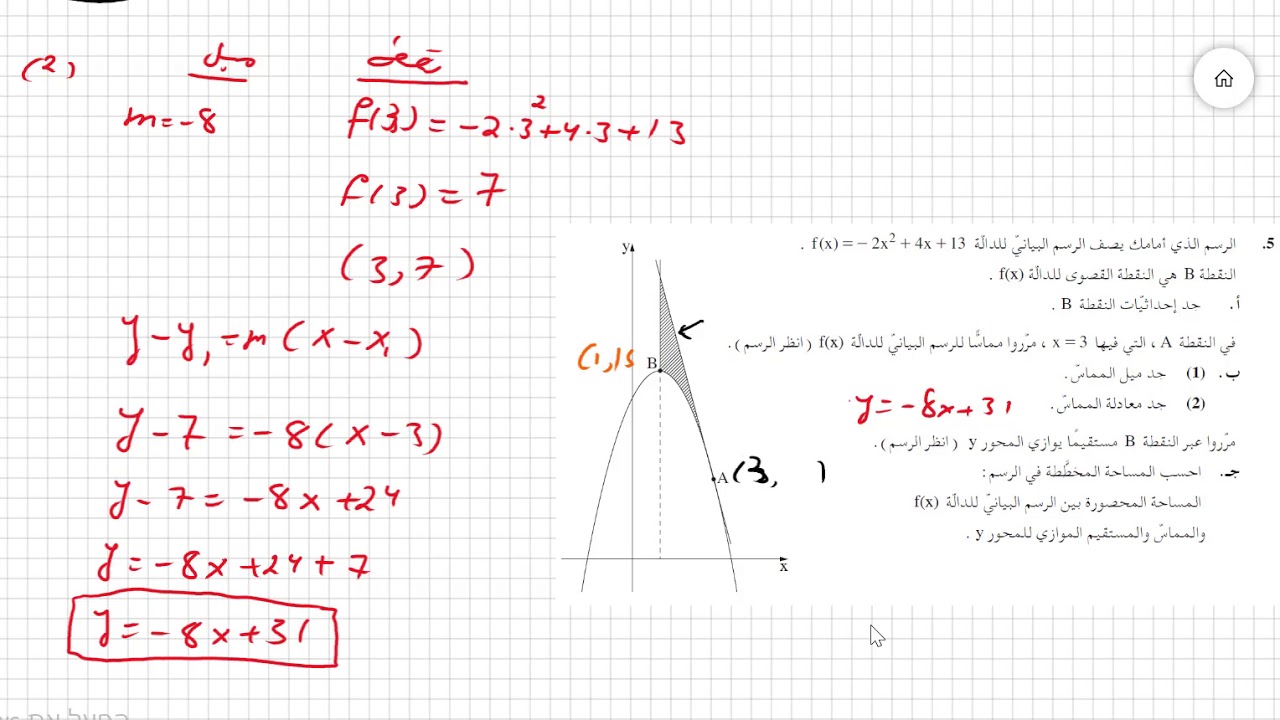 (2)
ميل
نقطة
m = -8
f(3) = -2·3² + 4·3 + 13
f(3) = 7
(3, 7)
y - y₁ = m(x - x₁)
y - 7 = -8(x - 3)
y - 7 = -8x + 24
y = -8x + 24 + 7
y = -8x + 31
5. الرسم الذي أمامك يصف الرسم البيانيّ للدالّة f(x) = - 2x² + 4x + 13 .
النقطة B هي النقطة القصوى للدالّة f(x) .
أ. جد إحداثيّات النقطة B .
في النقطة A ، التي فيها x = 3 ، مرّروا مماسًّا للرسم البيانيّ للدالّة f(x) ( انظر الرسم ) .
ب. (1) جد ميل المماسّ.
(2) جد معادلة المماسّ. y = -8x + 31
مرّروا عبر النقطة B مستقيمًا يوازي المحور y ( انظر الرسم ) .
جـ. احسب المساحة المخطَّطة في الرسم :
المساحة المحصورة بين الرسم البيانيّ للدالّة f(x)
والمماسّ والمستقيم الموازي للمحور y .
y
(1,15
B
A (3, )
x